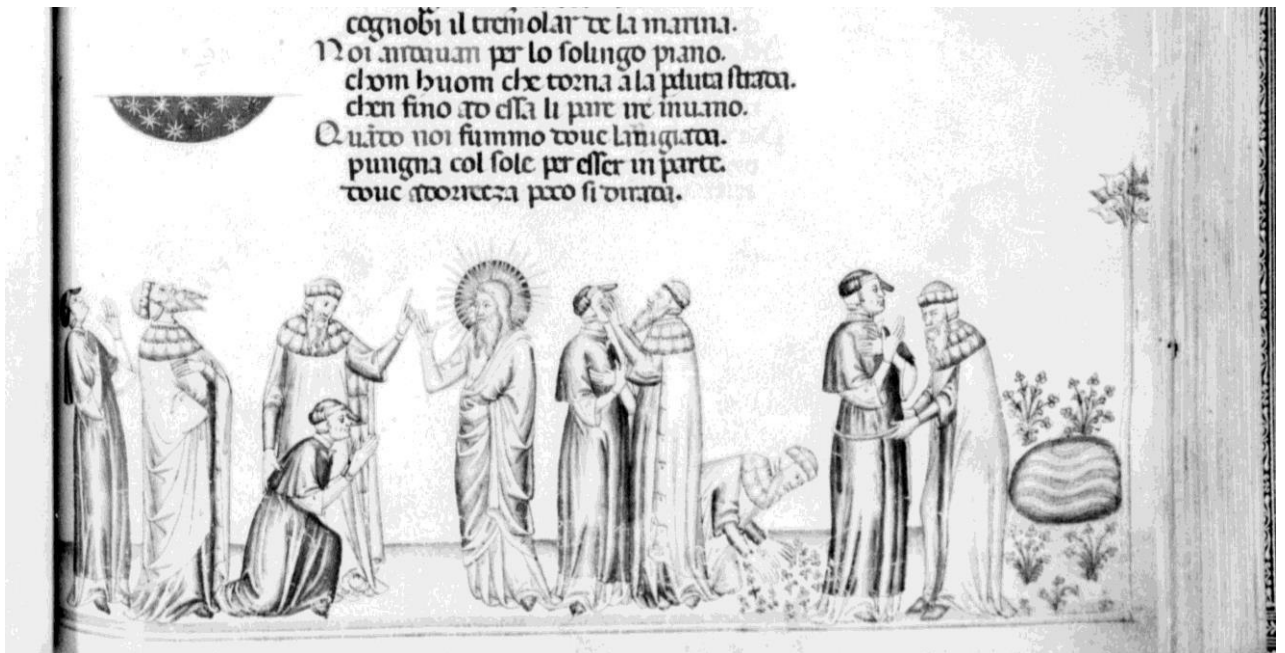 cognobi il tremolar de la marina.
Noi andauam per lo solingo piano.
chom huom che torna a la pduta strada.
chen fino ad essa li pare ire inuano.
Quãdo noi fummo doue la rugiada.
pungna col sole per esser in parte.
doue adorezza poco si dirada.